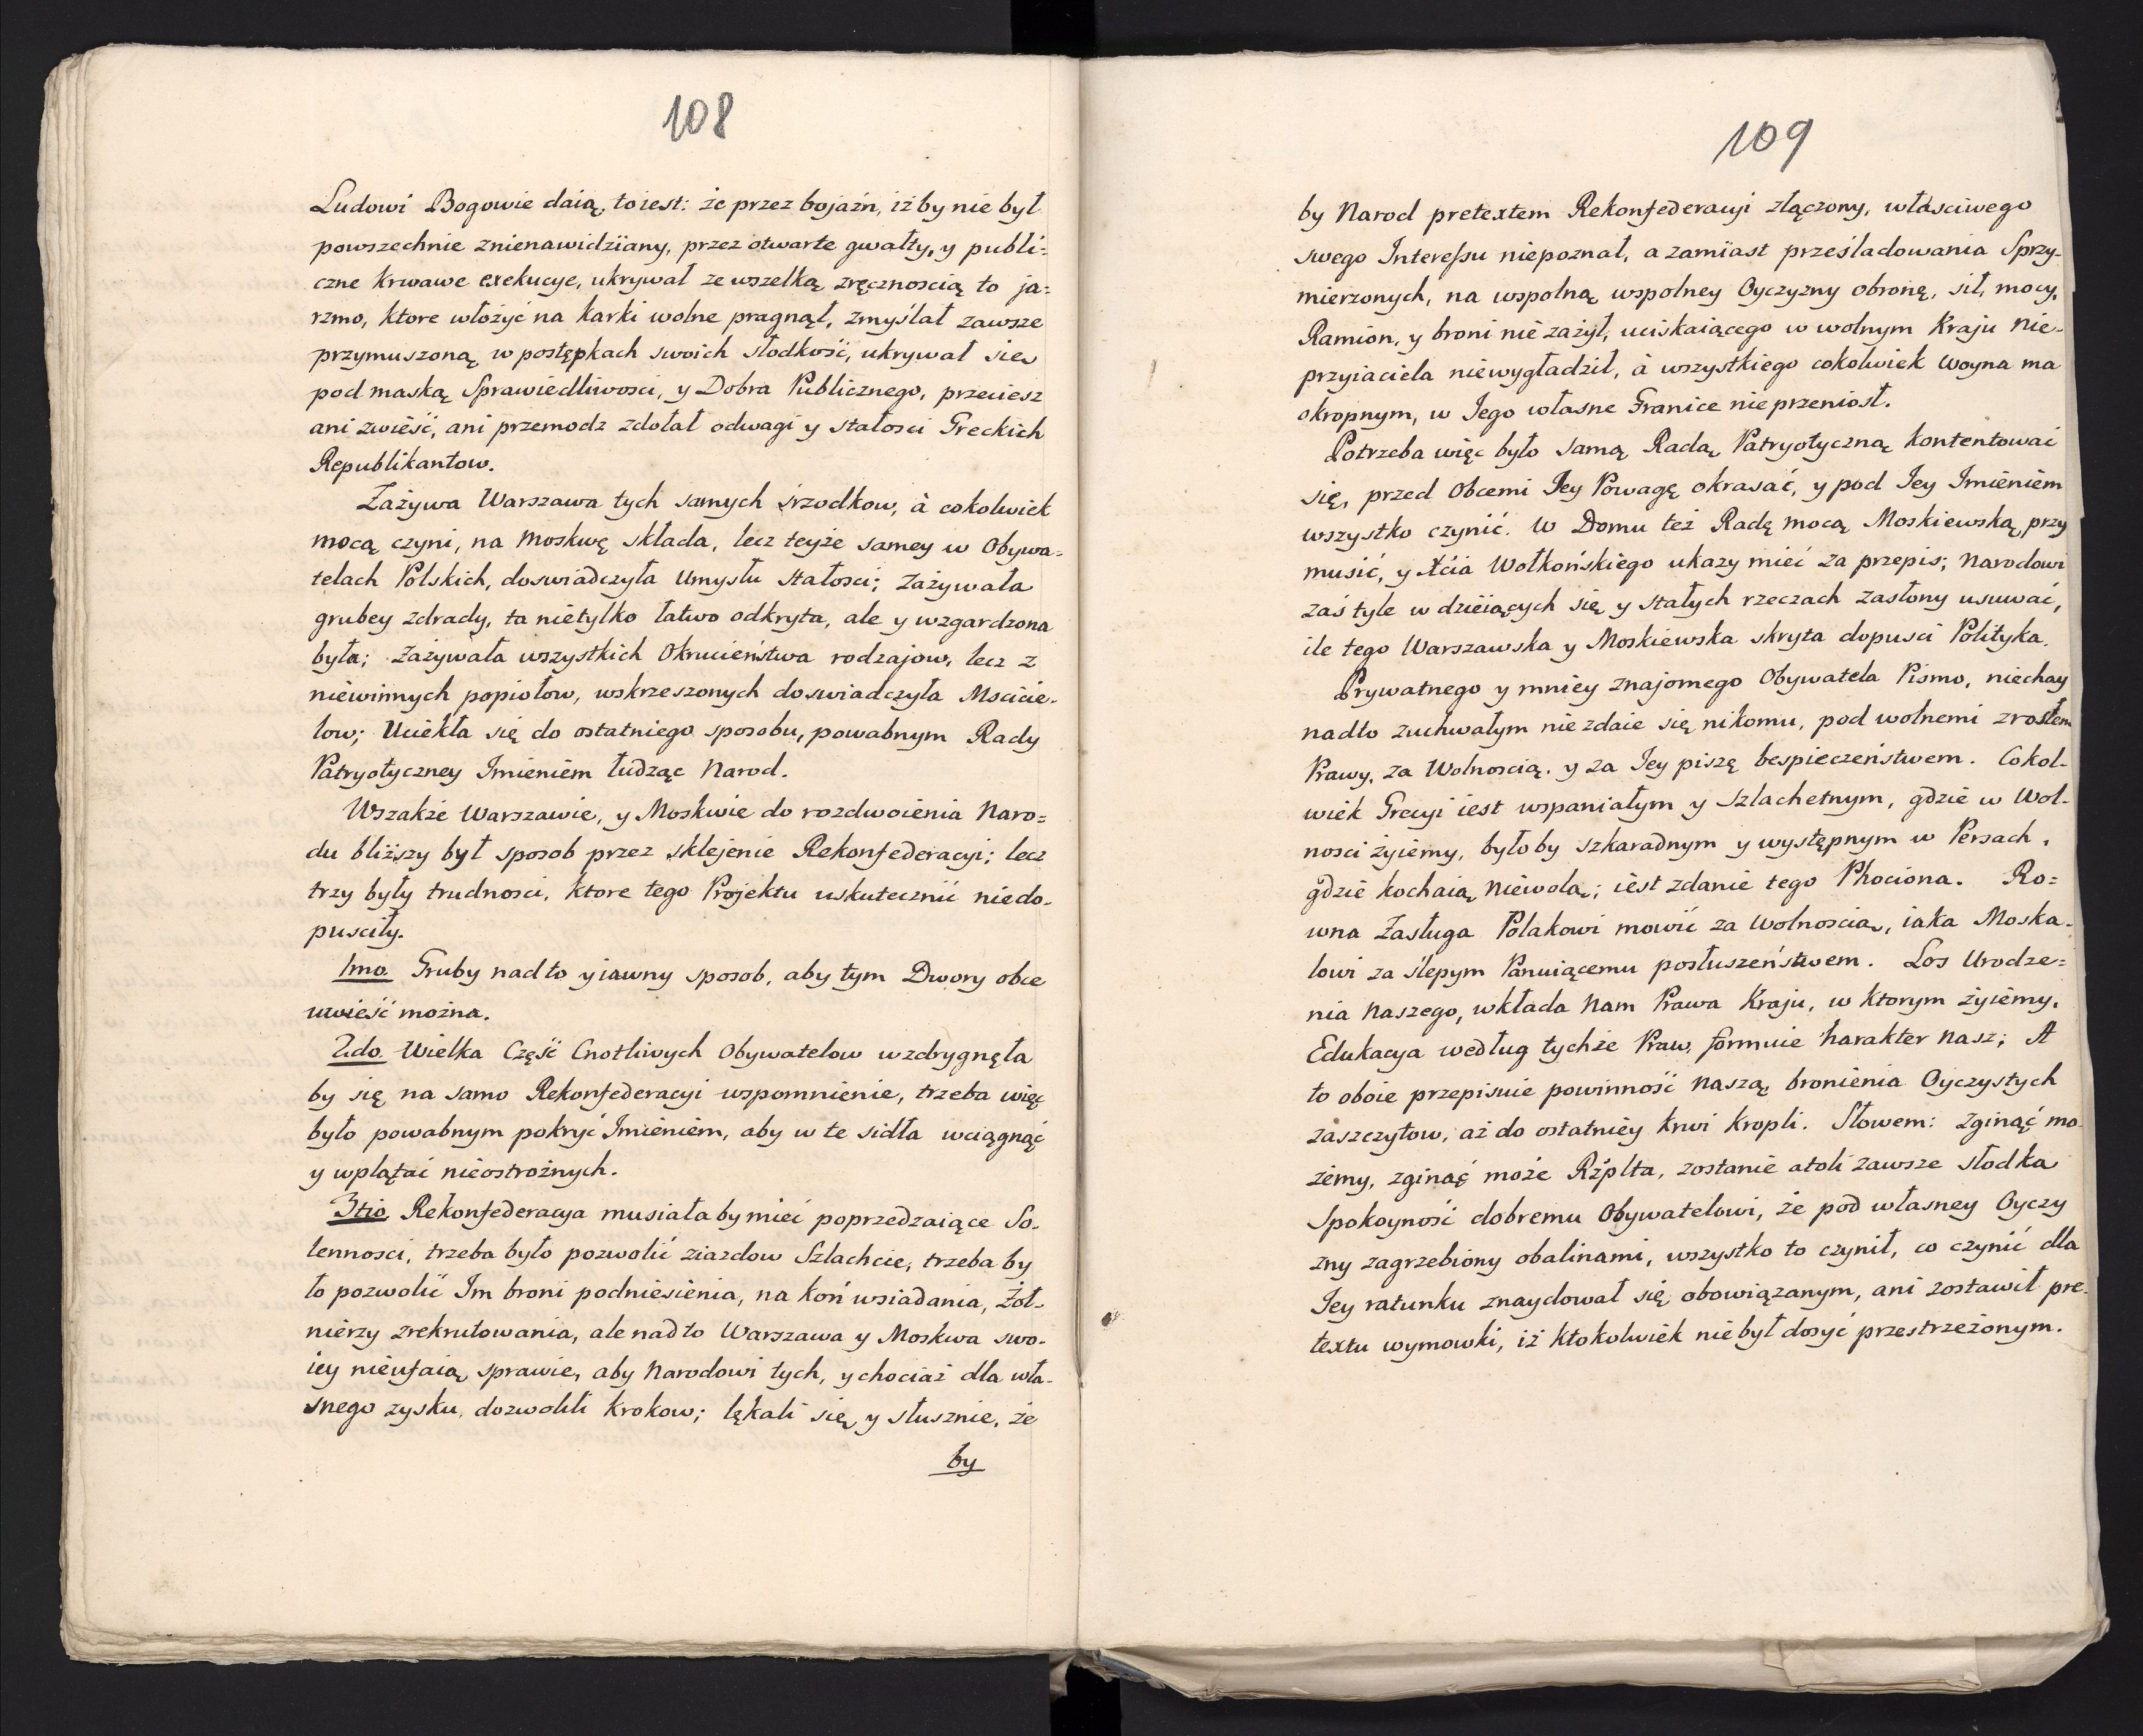 108
Ludowi Bogowie daią, toiest: że przez bojaźn, iż by nie był
powszechnie znienawidziany, przez otwarte gwałty, y publi=
czne krwawe exekucye, ukrywał ze wszelką zręcznoscią to ja=
rzmo, ktore włożyć na karki wolne pragnął, zmyślał zawsze
przymuszoną w postępkach swoich słodkość, ukrywał się
pod maską Sprawiedliwosci, y Dobra Publicznego, przeciesz
ani zwieść, ani przemodz zdołał odwagi y stałosci Greckich
Republikantow.
Zażywa Warszawa tych samych śrzodkow, à cokolwiek
mocą czyni, na Moskwę składa, lecz teyże samey w Obywa=
telach Polskich, doswiadczyła Umysłu stałosci; Zażywała
grubey zdrady, ta nietylko łatwo odkryta, ale y wzgardzona
była; Zażywała wszystkich Okrucieństwa rodzajow, lecz z
niewinnych popiołow, wskrzeszonych doswiadczyła Mscicie-
low; Uciekła się do ostatniego sposobu, powabnym Rady
Patryotyczney Imieniem łudząc Narod.
Wszakże Warszawie, y Moskwie do rozdwoienia Naro=
du bliższy był sposob przez sklejenie Rekonfederacyi; lecz
trzy były trudnosci, ktore tego Projektu uskutecznić niedo-
pusciły.
1mo. Gruby nadto y iawny sposob, aby tym Dwory obce
uwieść można.
2do. Wielka Część Cnotliwych Obywatelow wzdrygnęła
by się na samo Rekonfederacyi wspomnienie, trzeba więc
było powabnym pokryć Imieniem, aby w te sidła wciągnąć
y wplątać nieostrożnych.
3tio. Rekonfederacya musiała by mieć poprzedzaiące So-
lennosci, trzeba było pozwolić ziazdow Szlachcie, trzeba by
ło pozwolić Im broni podniesienia, na koń wsiadania, Żoł-
nierzy zrekrutowania, ale nadto Warszawa y Moskwa swo-
iey nieufaią sprawie, aby Narodowi tych, y chociaż dla wła-
snego zysku, dozwolili krokow; lękali się, y słusznie, że
by
109
by Narod pretextem Rekonfederacyi złączony, właściwego
swego Interessu niepoznał, a zamiast prześladowania Sprzy-
mierzonych, na wspolną wspolney Oyczyzny obronę, sił, mocy,
Ramion, y broni nie zażył, uciskaiącego w wolnym Kraju Nie-
przyiaciela niewygładził, à wszystkiego cokolwiek Woyna ma
okropnym, w Jego własne Granice nieprzeniosł.
Potrzeba więc było samą Radą Patryotyczną kontentować
się, przed Obcemi Jey Powagę okrasać, y pod Jey Imieniem
wszystko czynić. W Domu też Radę mocą Moskiewską przy
musić, y Xcia Wołkońskiego ukazy mieć za przepis; Narodowi
zaś tyle w dzieiących się y stałych rzeczach zasłony usuwać,
ile tego Warszawska y Moskiewska skryta dopusci Polityka.
Prywatnego y mniey znajomego Obywatela Pismo, niechay
nadto zuchwałym nie zdaie się nikomu, pod wolnemi zrosłem
Prawy, za Wolnoscią, y za Jey piszę bespieczeństwem. Cokol-
wiek Grecyi iest wspaniałym y szlachetnym, gdzie w Wol-
nosci żyiemy, było by szkaradnym y występnym w Persach,
gdzie kochaią Niewolą; iest zdanie tego Phociona. Ro=
wna Zasługa Polakowi mowić za Wolnoscią, iaka Moska-
lowi za slepym Panuiącemu posłuszeństwem. Los Urodze=
nia Naszego, wkłada Nam Prawa Kraju, w ktorym żyiemy,
Edukacya według tychże Praw, formuie harakter Nasz; A
to oboie przepisuie powinność Naszą bronienia Oyczystych
zaszczytow, aż do ostatniey krwi kropli. Słowem: Zginąć mo-
żemy, zginąć może Rżplta, zostanie atoli zawsze słodka
Spokoyność dobremu Obywatelowi, że pod własney Oyczy
zny zagrzebiony obalinami, wszystko to czynił, co czynić dla
Jey ratunku znaydował się obowiązanym, ani zostawił pre-
textu wymowki, iż ktokolwiek nie był dosyć przestrzeżonym.